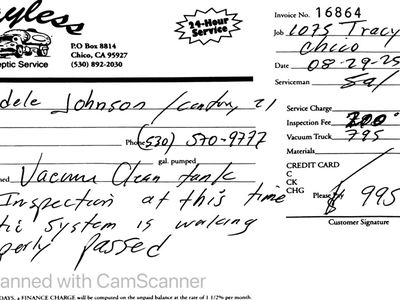 yless
24-Hour
Service
Invoice No. 16864
Job 1075 Tracy
Chico
P.O Box 8814
Chico, CA 95927
(530) 892-2030
eptic Service
Date 08-29-25
Serviceman Sal
dele Johnson / century 21
Service Charge
Inspection Fee 200
Phone (530) 570-9777
Vacuum Truck 795
Materials
gal. pumped
ned Vacuum Clean tank
CREDIT CARD
C
CK
CHG
Please Pay $ 995
Inspection at this time
tic system is working
perly Passed
Customer Signature
anned with CamScanner
DAYS, a FINANCE CHARGE will be computed on the unpaid balance at the rate of 1 1/2% per month.